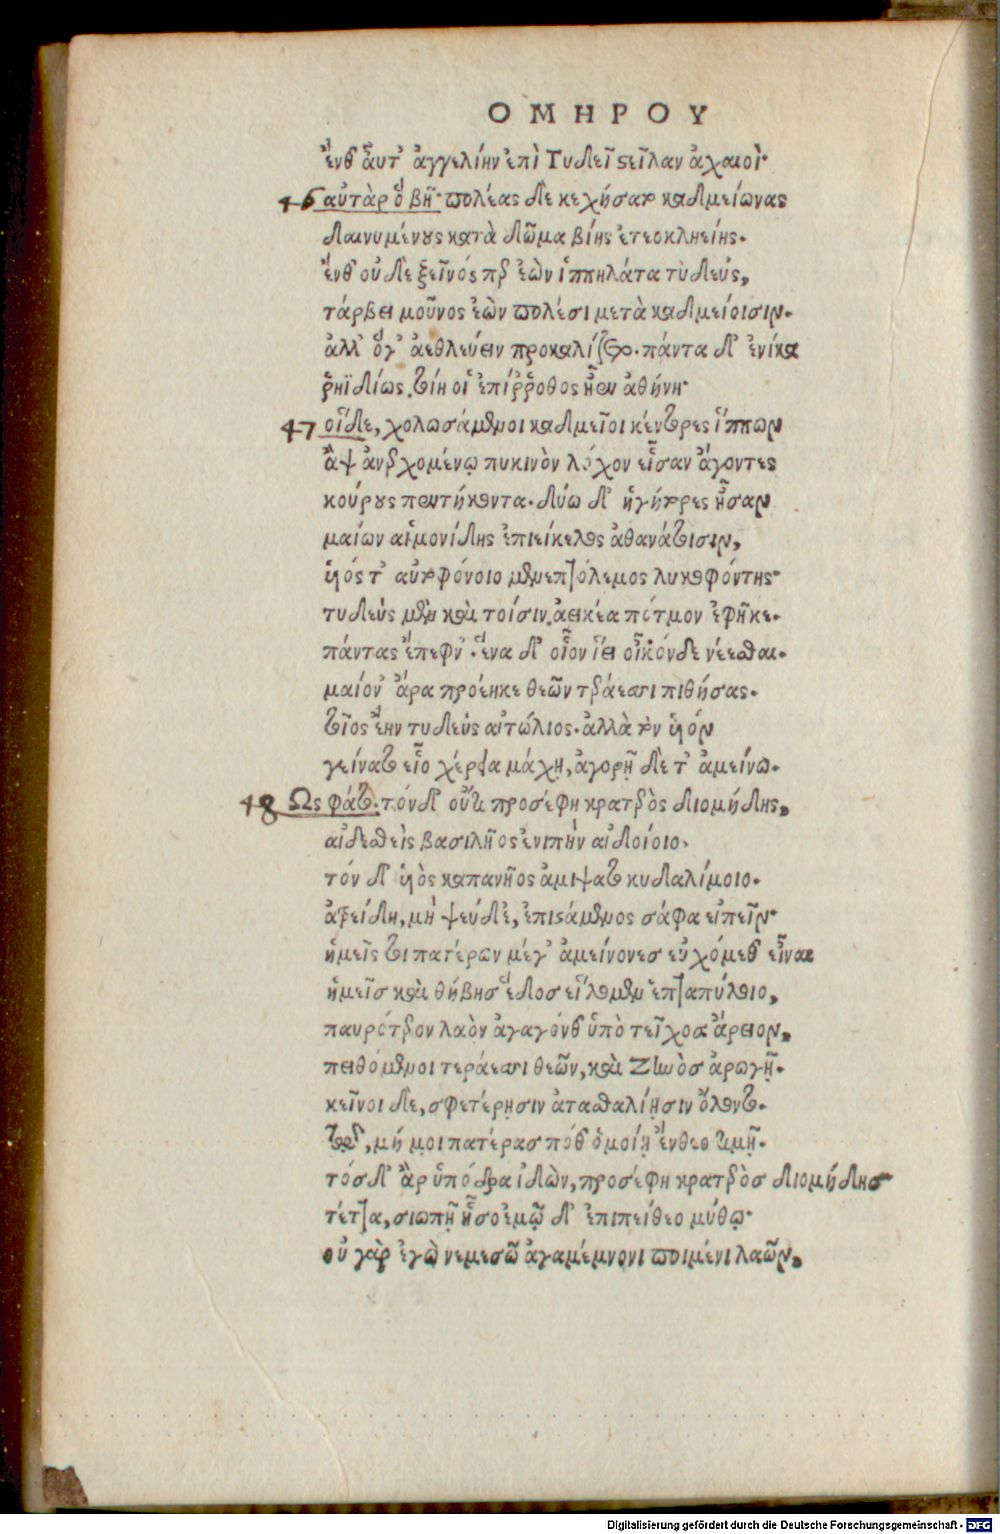 ΟΜΗΡΟΥ
ἔνθ' αὖτ' ἀγγελίην ἐπὶ Τυδεῖ στεῖλαν ἀχαιοὶ·
46 αὐτὰρ ὁ βῆ· πολέας δὲ κιχήσατο καδμείωνας
δαινυμένους κατὰ δῶμα βίης ἐτεοκληείης.
ἔνθ' οὐδὲ ξεῖνός περ ἐὼν ἱππηλάτα τυδεύς,
τάρβει μοῦνος ἐὼν πολέσι μετὰ καδμείοισιν.
ἀλλ' ὅγ' ἀεθλεύειν προκαλίζετο. πάντα δ' ἐνίκα
ῥηϊδίως. τοίη οἱ ἐπίῤῥοθος ἦεν ἀθήνη·
47 οἱ δὲ, χολωσάμενοι καδμεῖοι κέντορες ἵππων
ἂψ ἀνερχομένῳ πυκινὸν λόχον εἷσαν ἄγοντες
κούρους πεντήκοντα. δύω δ' ἡγήτορες ἦσαν
μαίων αἱμονίδης ἐπιείκελος ἀθανάτοισιν,
ὑός τ' αὐτοφόνοιο μενεπτόλεμος λυκοφόντης·
τυδεὺς μὲν καὶ τοῖσιν ἀεικέα πότμον ἐφῆκε.
πάντας ἔπεφν'. ἕνα δ' οἶον ἵει οἶκόνδε νέεσθαι.
μαίον' ἄρα προέηκε θεῶν τεράεσσι πιθήσας.
τοῖος ἔην τυδεὺς αἰτώλιος. ἀλλὰ τὸν ὑόν
γείνατο εἷο χέρεια μάχῃ, ἀγορῇ δέ τ' ἀμείνω.
48 Ως φάτο. τόνδ' οὔτι προσέφη κρατερὸς διομήδης,
αἰδεσθεὶς βασιλῆος ἐνιπὴν αἰδοίοιο.
τόν δ' ὑὸς καπανῆος ἀμιψατο κυδαλίμοιο.
ἀτρείδη, μὴ ψεύδε, ἐπιστάμενος σάφα εἰπεῖν·
ἡμεῖς τοι πατέρων μέγ' ἀμείνονεσ εὐχόμεθ' εἶναι
ἡμεῖσ καὶ θήβησ ἕδοσ εἵλομεν ἑπταπύλοιο,
παυρότερον λαὸν ἀγαγόνθ' ὑπὸ τεῖχοσ ἄρειον,
πειθόμενοι τεράεσσι θεῶν, καὶ Ζηνὸσ ἀρωγῇ.
κεῖνοι δὲ, σφετέρῃσιν ἀτασθαλίῃσιν ὄλοντο.
τῷ, μή μοι πατέρασ ποθ' ὁμοίῃ ἔνθεο τιμῇ.
τόσδ' ἂρ ὑπόδρα ἰδὼν, προσέφη κρατερὸσ διομήδησ
τέττα, σιωπῇ ἧσο ἐμῷ δ' ἐπιπείθεο μύθῳ·
οὐ γὰρ ἐγὼ νεμεσῶ ἀγαμέμνονι ποιμένι λαῶν,
Digitalisierung gefördert durch die Deutsche Forschungsgemeinschaft - DFG